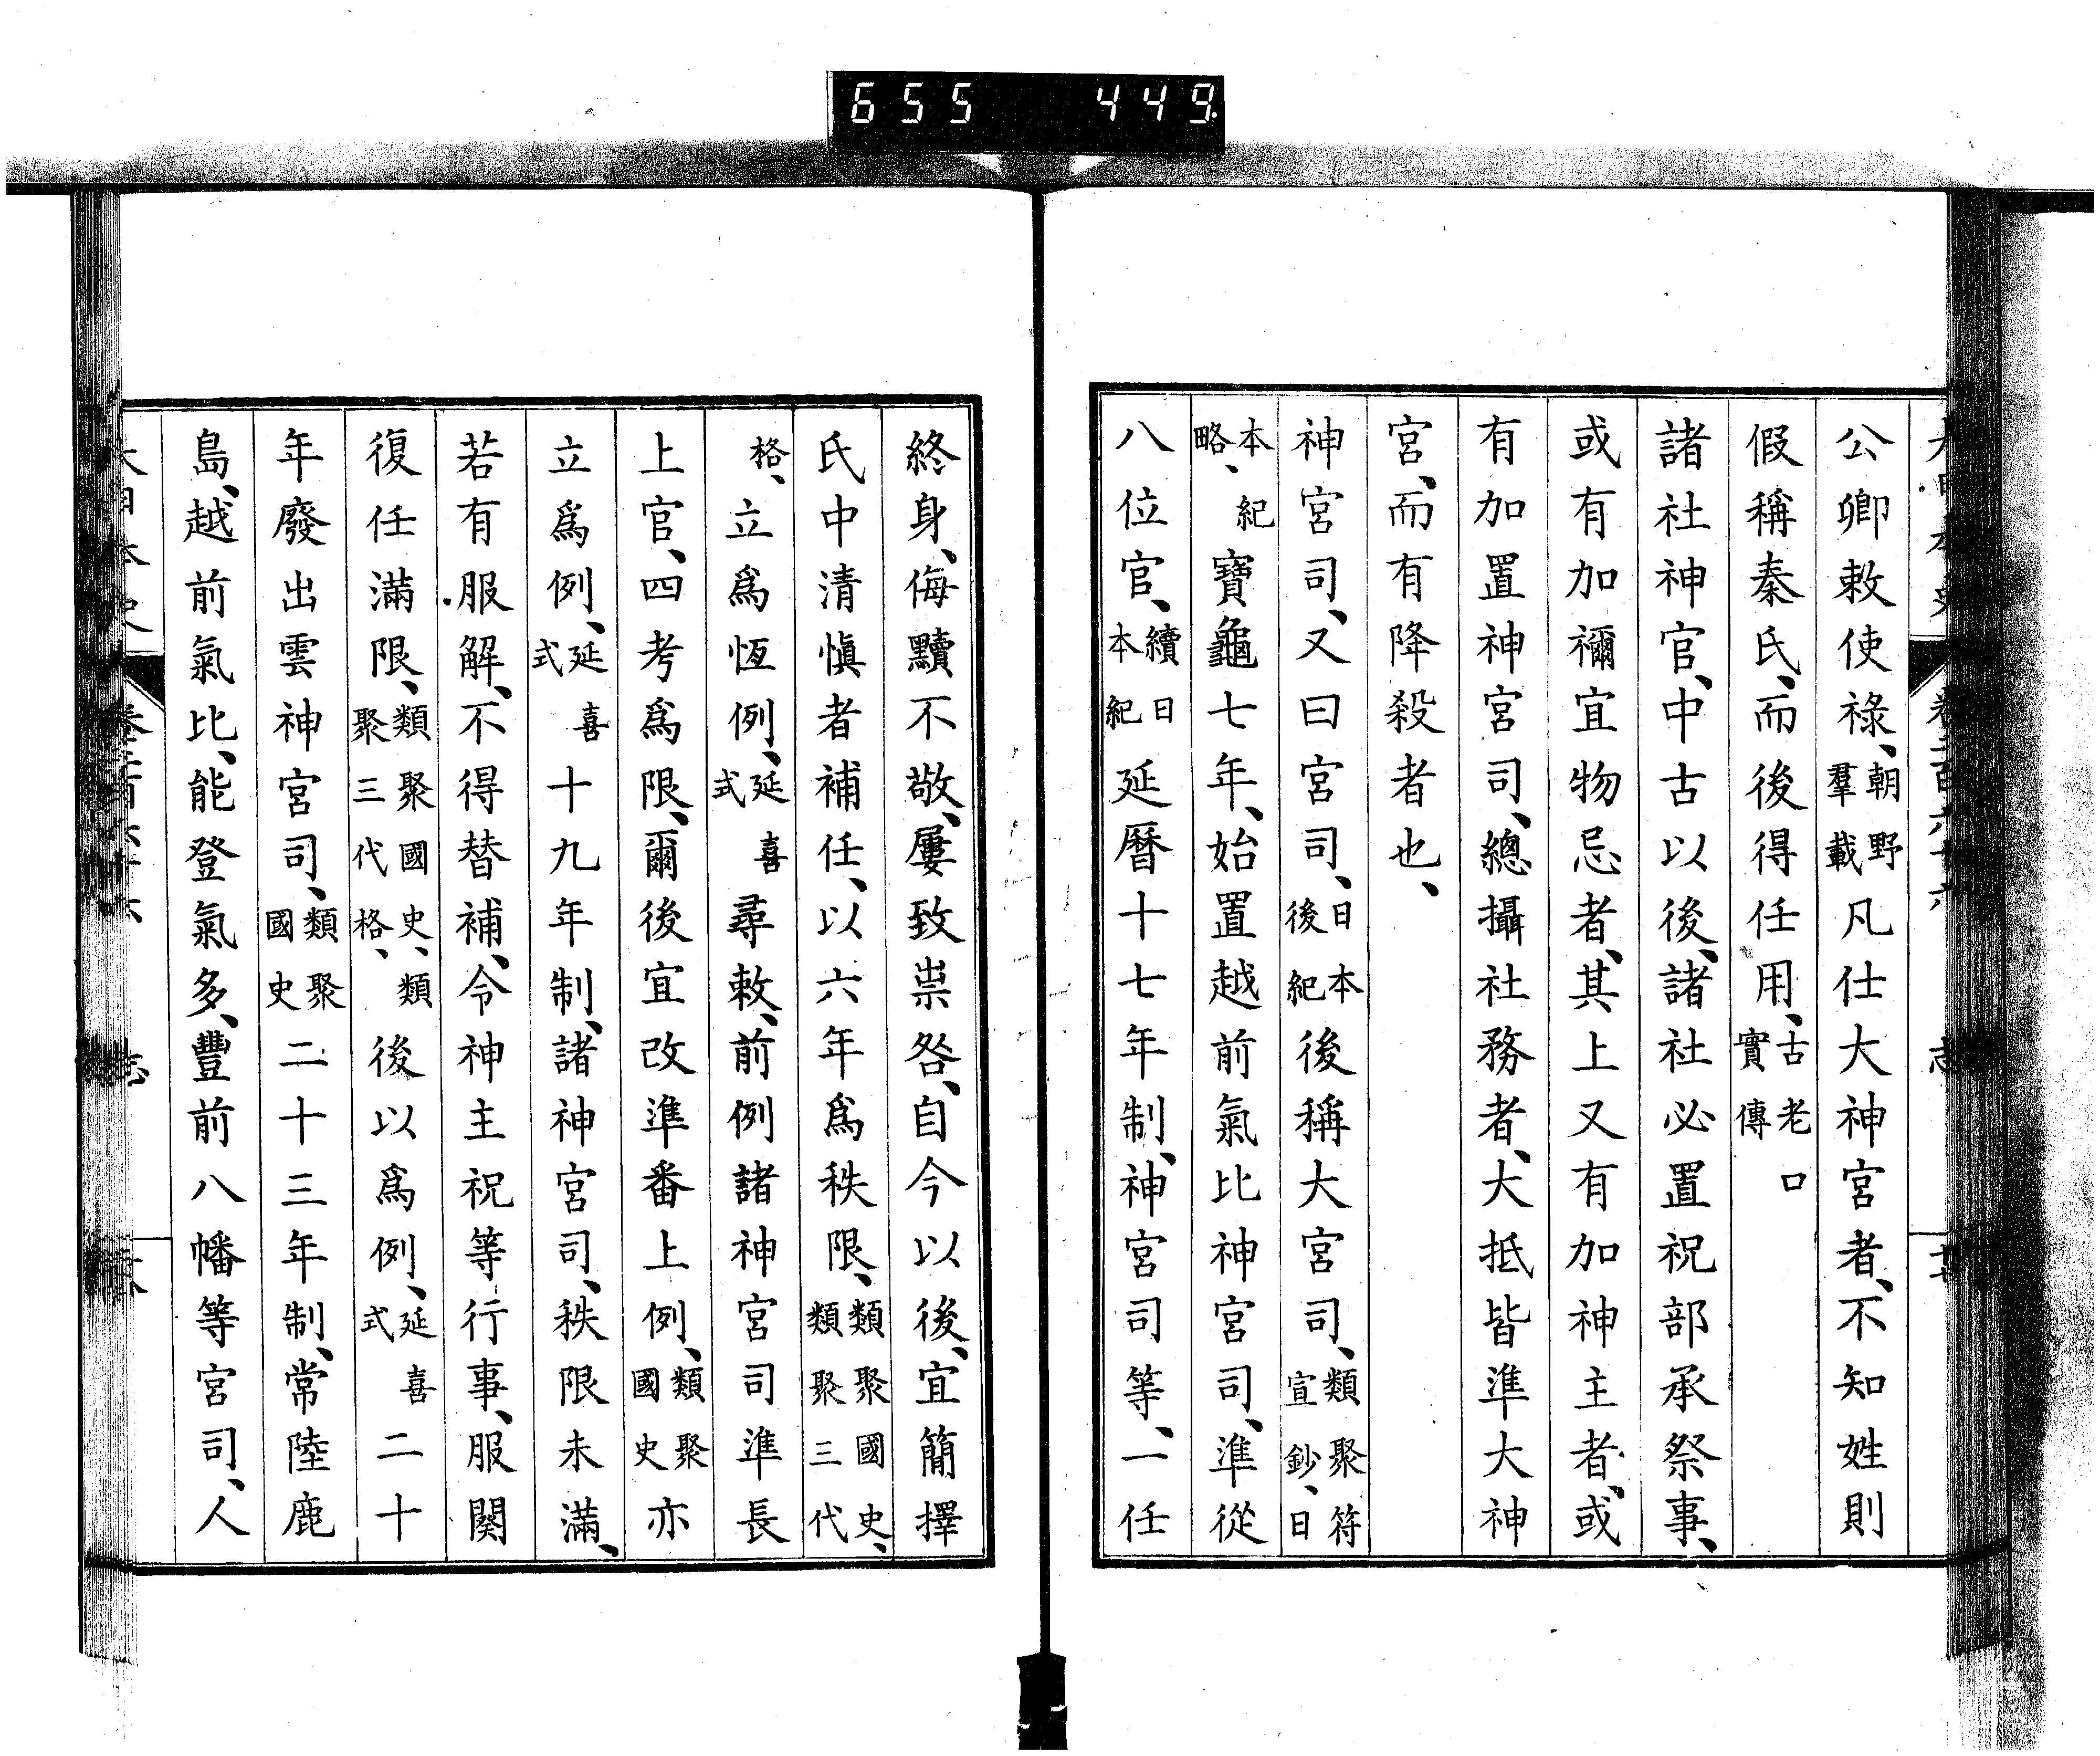 655 449
公卿敕使祿、朝野羣載凡仕大神宮者、不知姓則
假稱秦氏、而後得任用、古老口實傳
諸社神官、中古以後、諸社必置祝部承祭事、
或有加禰宜物忌者、其上又有加神主者、或
有加置神宮司、總攝社務者、大抵皆準大神
宮、而有降殺者也、
神宮司、又曰宮司、日本後紀後稱大宮司、類聚符宣鈔、日
本紀略、寶龜七年、始置越前氣比神宮司、準從
八位官、續日本紀延曆十七年制、神宮司等、一任
終身、侮黷不敬、屢致祟咎、自今以後、宜簡擇
氏中清愼者補任、以六年爲秩限、類聚國史、類聚三代
格、立爲恆例、延喜式尋敕、前例諸神宮司準長
上官、四考爲限、爾後宜改準番上例、類聚國史亦
立爲例、延喜式十九年制、諸神宮司、秩限未滿、
若有服解、不得替補、令神主祝等行事、服闋
復任滿限、類聚國史、類聚三代格、後以爲例、延喜式二十
年廢出雲神宮司、類聚國史二十三年制、常陸鹿
島、越前氣比、能登氣多、豐前八幡等宮司、人
大日本史 志